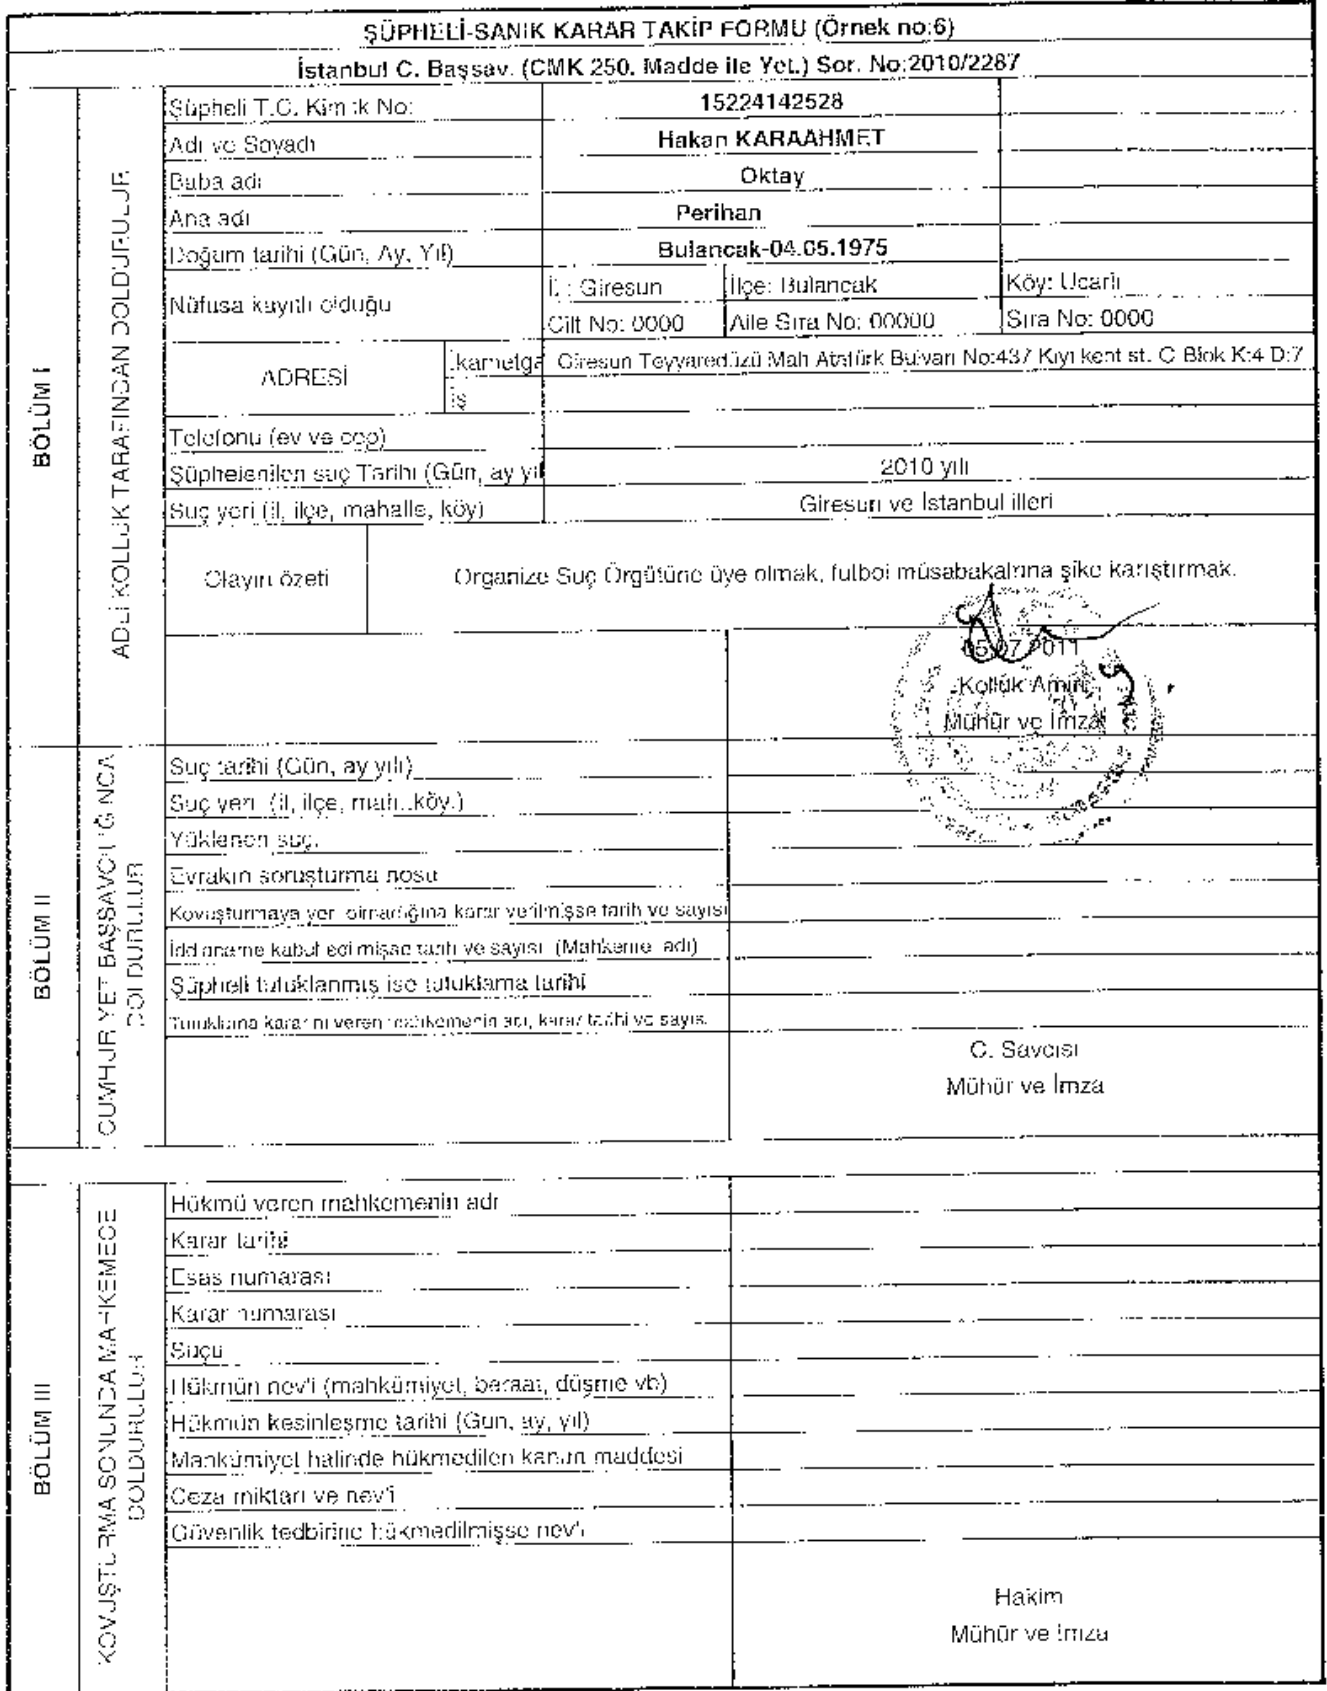 ŞÜPHELİ-SANIK KARAR TAKİP FORMU (Örnek no:6)
İstanbul C. Başsav. (CMK 250. Madde ile Yet.) Sor. No:2010/2287
BÖLÜM I
ADLİ KOLLUK TARAFINDAN DOLDURULUR
Şüpheli T.C. Kimlik No: 15224142528
Adı ve Soyadı Hakan KARAAHMET
Baba adı Oktay
Ana adı Perihan
Doğum tarihi (Gün, Ay, Yıl) Bulancak-04.05.1975
Nüfusa kayıtlı olduğu
İl : Giresun İlçe: Bulancak Köy: Ucarlı
Cilt No: 0000 Aile Sıra No: 00000 Sıra No: 0000
ADRESİ
İkametga Giresun Teyyaredüzü Mah Atatürk Bulvarı No:437 Kıyı kent st. C Blok K:4 D:7
İş
Telefonu (ev ve cep)
Şüphelenilen suç Tarihi (Gün, ay yıl 2010 yılı
Suç yeri (il, ilçe, mahalle, köy) Giresun ve İstanbul illeri
Olayın özeti Organize Suç Örgütüne üye olmak, futbol müsabakalrına şike karıştırmak.
05.07.2011
Kolluk Amiri
Mühür ve İmza
BÖLÜM II
CUMHURİYET BAŞSAVCILIĞINCA DOLDURULUR
Suç tarihi (Gün, ay yılı)
Suç yeri (il, ilçe, mah..köy.)
Yüklenen suç.
Evrakın soruşturma nosu
Kovuşturmaya yer olmadığına karar verilmişse tarih ve sayısı
İddianame kabul edilmişse tarih ve sayısı (Mahkeme adı)
Şüpheli tutuklanmış ise tutuklama tarihi
Tutuklama kararını veren mahkemenin adı, karar tarihi ve sayısı.
C. Savcısı
Mühür ve İmza
BÖLÜM III
KOVUŞTURMA SONUNDA MAHKEMECE DOLDURULUR
Hükmü veren mahkemenin adı
Karar tarihi
Esas numarası
Karar numarası
Suçu
Hükmün nev'i (mahkûmiyet, beraat, düşme vb)
Hükmün kesinleşme tarihi (Gün, ay, yıl)
Mahkûmiyet halinde hükmedilen kanun maddesi
Ceza miktarı ve nev'i
Güvenlik tedbirine hükmedilmişse nev'i
Hakim
Mühür ve İmza